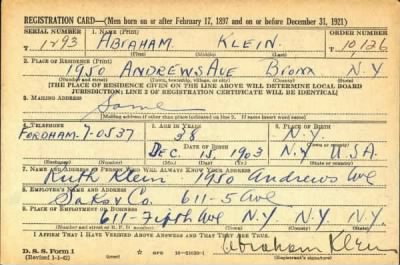 REGISTRATION CARD—(Men born on or after February 17, 1897 and on or before December 31, 1921)
SERIAL NUMBER 1. NAME (Print) ORDER NUMBER
T 1293 ABRAHAM KLEIN T 10,126
2. PLACE OF RESIDENCE (Print)
1950 ANDREWS AVE BRONX N.Y
(Number and street) (Town, township, village, or city) (County) (State)
[THE PLACE OF RESIDENCE GIVEN ON THE LINE ABOVE WILL DETERMINE LOCAL BOARD
JURISDICTION; LINE 2 OF REGISTRATION CERTIFICATE WILL BE IDENTICAL]
3. MAILING ADDRESS
Same
[Mailing address if other than place indicated on line 2. If same insert word same]
4. TELEPHONE 5. AGE IN YEARS 6. PLACE OF BIRTH
FORDHAM-7-0537 38 N.Y.
DATE OF BIRTH
DEC. 15, 1903 N.Y U.S.A.
(Exchange) (Number) (Mo.) (Day) (Yr.) (State or country)
7. NAME AND ADDRESS OF PERSON WHO WILL ALWAYS KNOW YOUR ADDRESS
Ruth Klein 1950 Andrews Ave
8. EMPLOYER'S NAME AND ADDRESS
Saks & Co. 611-5 Ave
9. PLACE OF EMPLOYMENT OR BUSINESS
611-Fifth Ave N.Y. N.Y. N.Y
(Number and street or R. F. D. number) (Town) (County) (State)
I AFFIRM THAT I HAVE VERIFIED ABOVE ANSWERS AND THAT THEY ARE TRUE.
D. S. S. Form 1
(Revised 1-1-42) (over) Abraham Klein